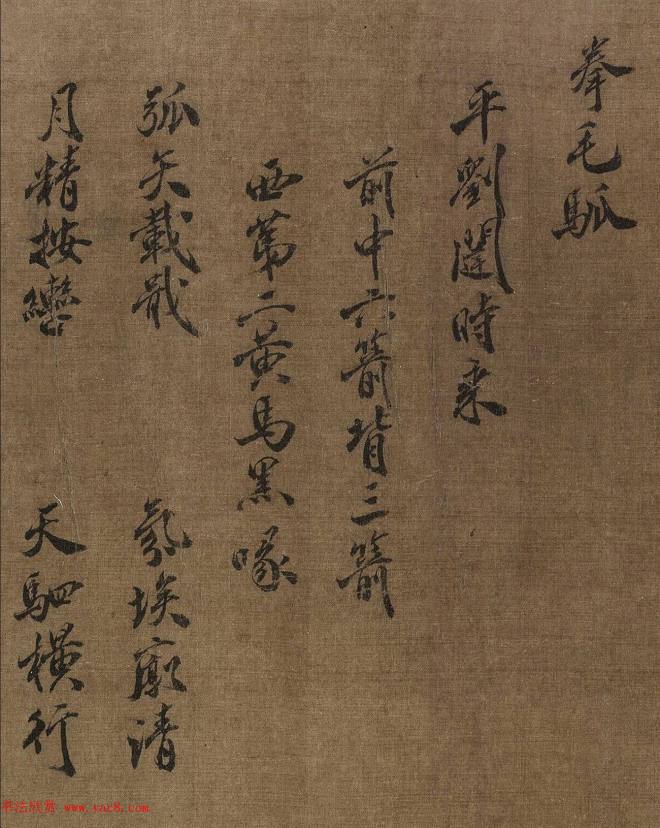 拳毛騧
平劉闥時乘
前中六箭背三箭
西第二黃馬黑喙
弧矢載戢 氛埃廓清
月精按轡 天駟橫行
书法欣赏 www.yac8.com